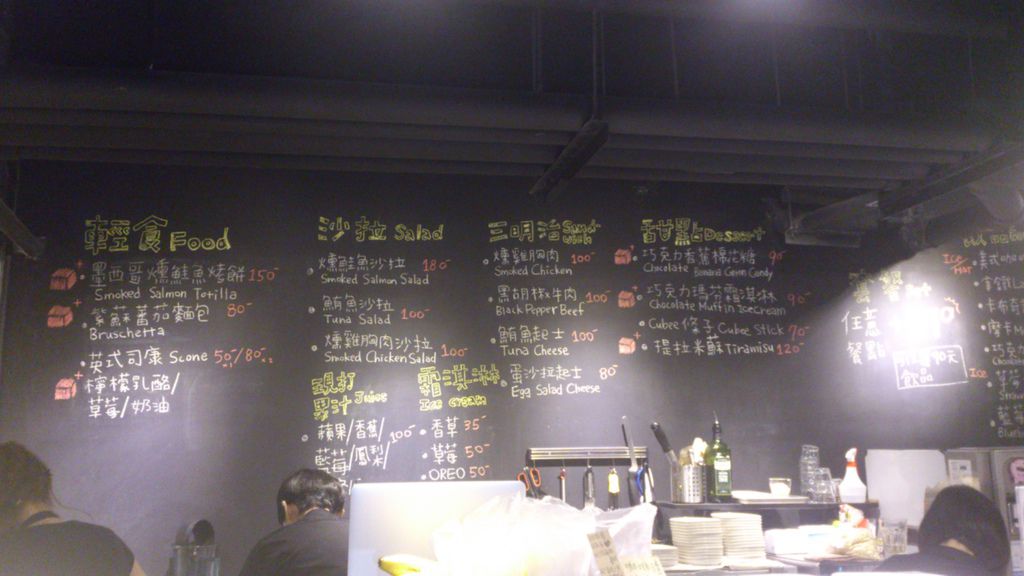 輕食 Food
墨西哥燻鮭魚烤餅 150
Smoked Salmon Tortilla
紫蘇蕃茄麵包 80
Bruschetta
英式司康 Scone 50/80
檸檬乳酪/
草莓/奶油
沙拉 Salad
燻鮭魚沙拉 180
Smoked Salmon Salad
鮪魚沙拉
Tuna Salad 100
燻雞胸肉沙拉
Smoked Chicken Salad 100
現打
果汁 Juice
蘋果/香蕉/ 100
藍莓/鳳梨/
霜淇淋
Ice cream
香草 35
草莓 50
OREO 50
三明治 Sandwich
燻雞胸肉 100
Smoked Chicken
黑胡椒牛肉 100
Black Pepper Beef
鮪魚起士 100
Tuna Cheese
蛋沙拉起士 80
Egg Salad Cheese
甜點 Dessert
巧克力香蕉棉花糖 90
Chocolate Banana Candy
巧克力瑪芬霜淇淋 90
Chocolate Muffin Icecream
Cubee 條子 Cubee Stick 70
提拉米蘇 Tiramisu 120
任意
餐點
飲品
Ice
Hot
美式
拿鐵
Ice
草莓
藍莓